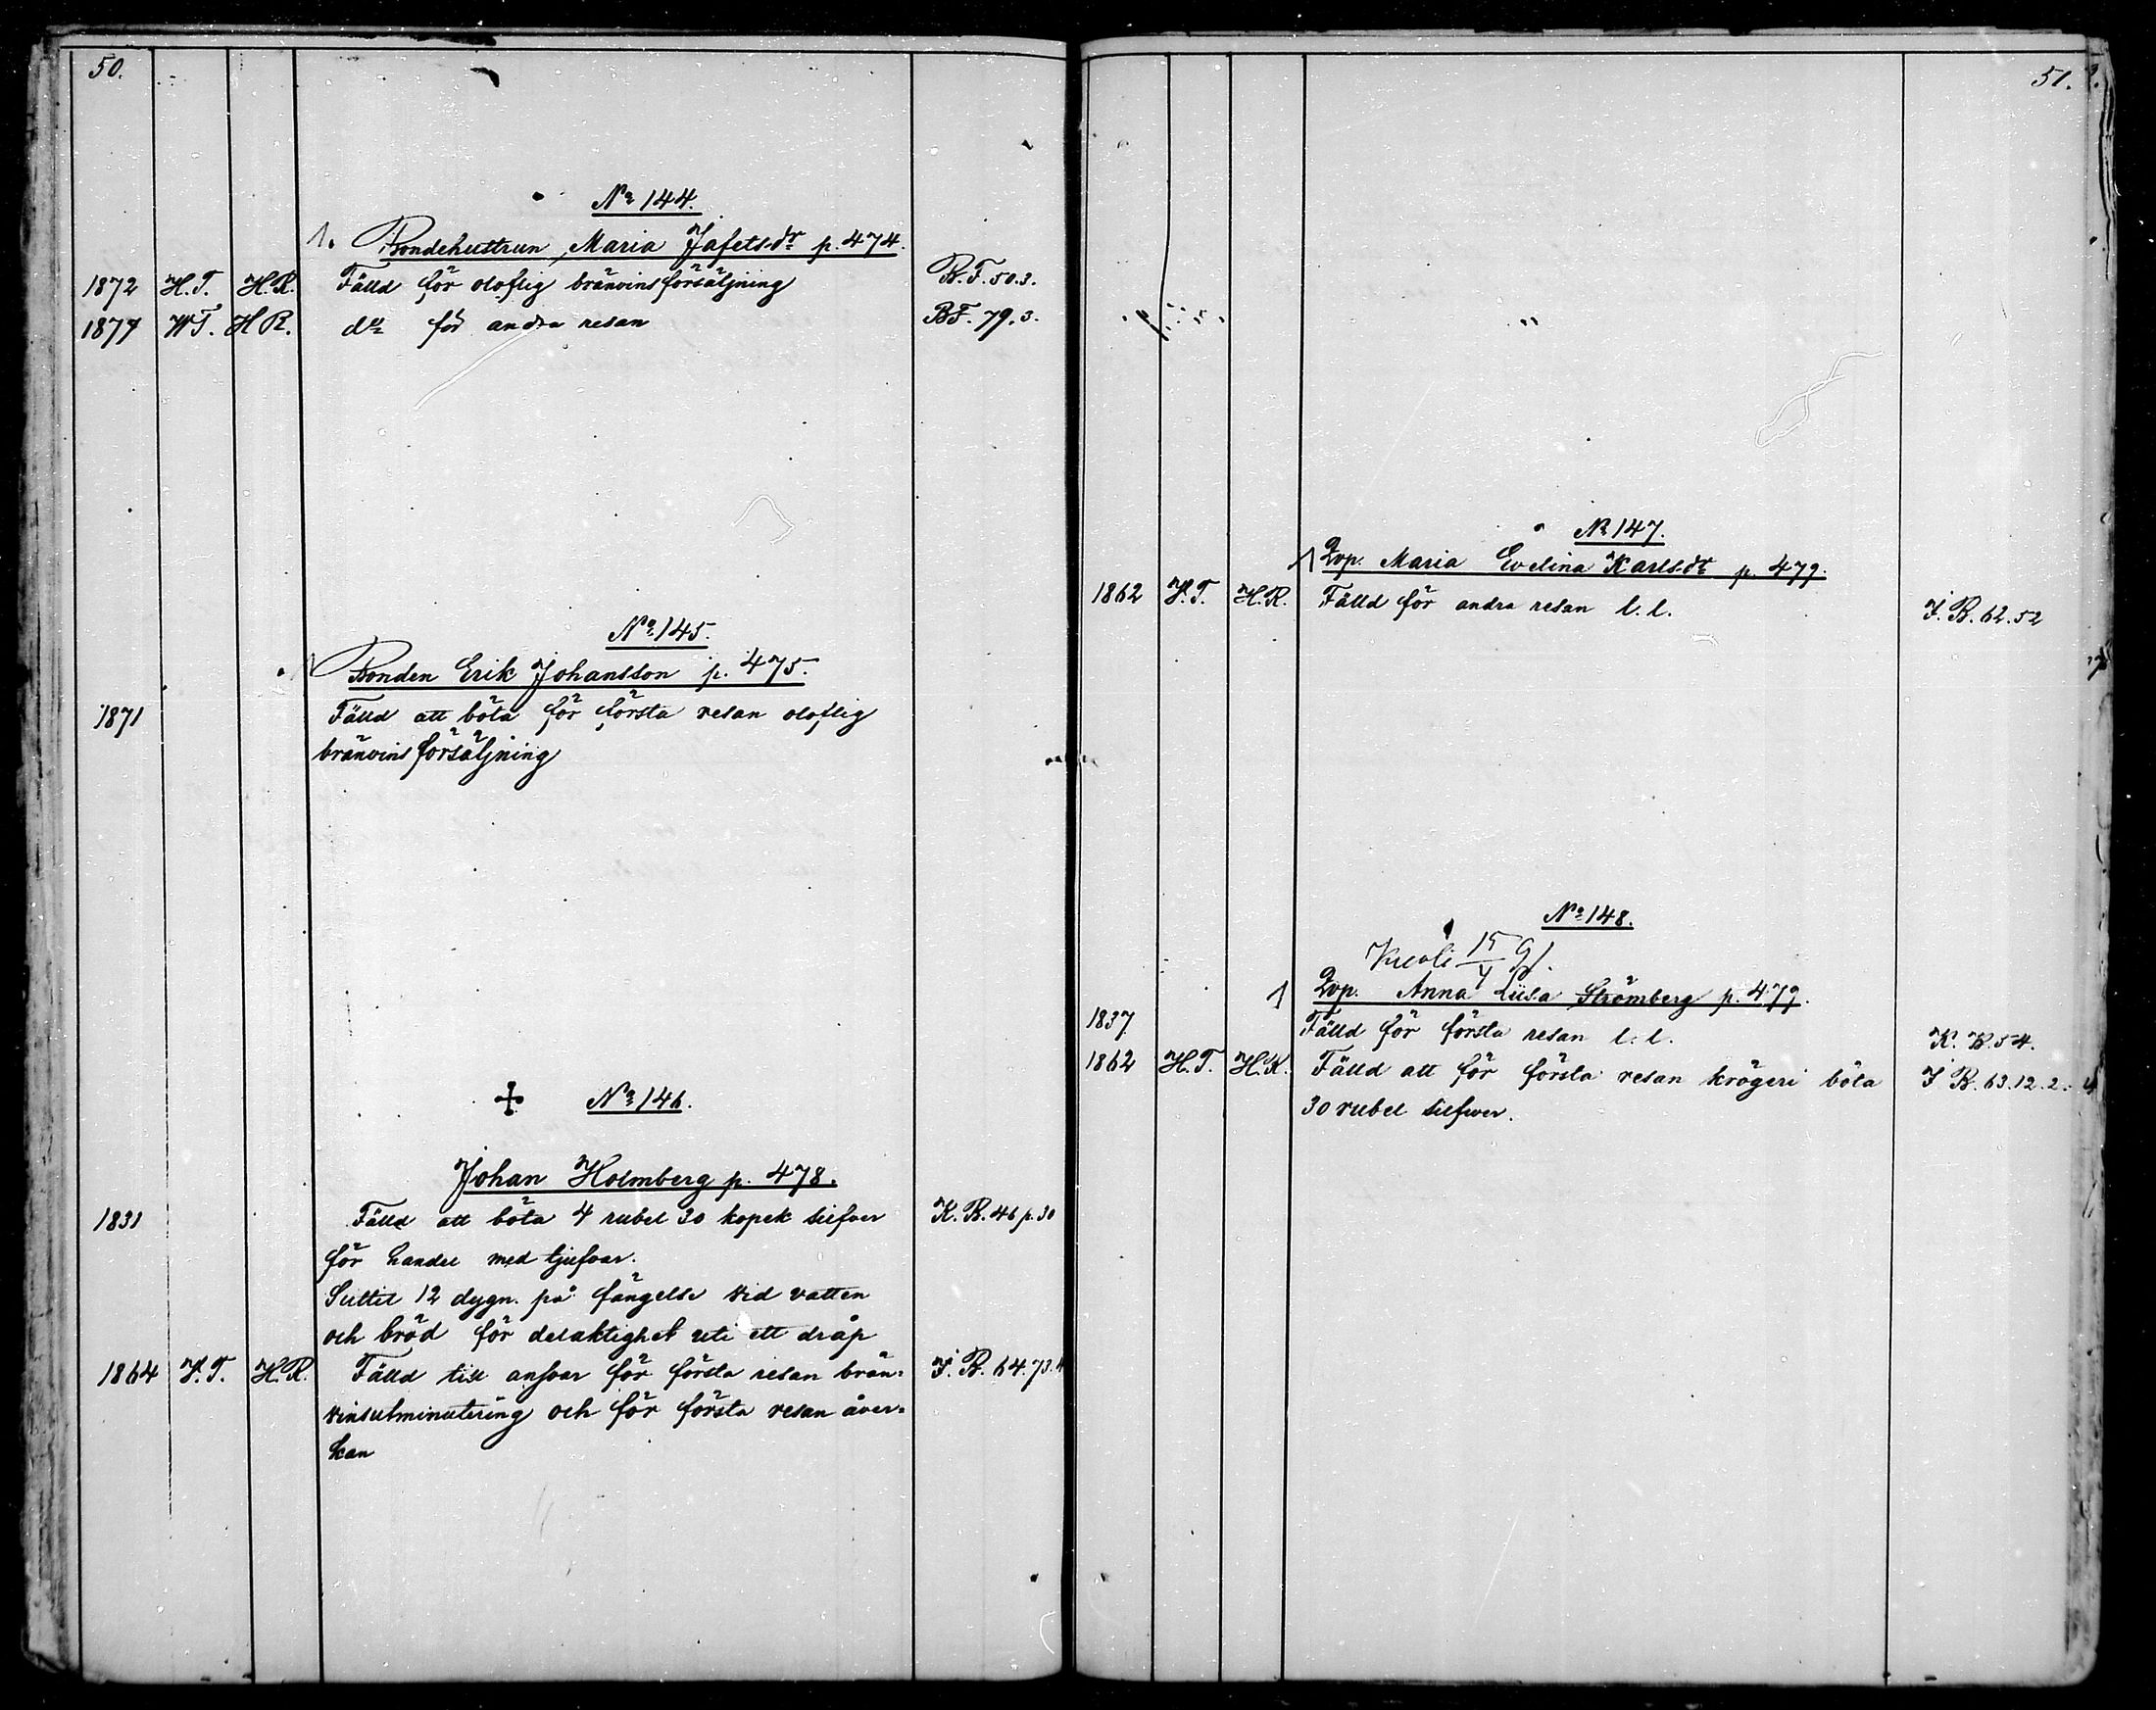 50.
No 144.
1. Bondehustrun Maria Jafetsdr p. 474.
1872 H.T. H.R. Fälld för oloflig bränvinsförsäljning B.F. 50.3.
1877 W.T. H R. do för andra resan BF. 79.3.
No 145.
1 Bonden Erik Johansson p. 475.
1871 Fälld att böta för första resan oloflig
bränvinsförsäljning
No 146.
Johan Holmberg p. 478.
1831 Fälld att böta 4 rubel 30 kopek silfver K.B. 46 p. 30
för handel med tjufvar.
Suttit 12 dygn. på fängelse vid vatten
och bröd för delaktighet uti ett dråp
1864 V.T. H.R. Fälld till ansvar för första resan brän-
I.B. 64.73.
vinsutminutering och för första resan åver-
kan
51.
No 147.
1 Qvp. Maria Evelina Karlsdr p. 479.
1862 V.T. H.R. Fälld för andra resan l.l. I.B. 62.52
No 148.
Kuoli 15/4 91.
1 Qvp. Anna Liisa Strömberg p. 479.
1837 Fälld för första resan l.l. K.B. 54.
1862 H.T. H.R. Fälld att för första resan krögeri böta I B. 63.12.2.
30 rubel silfver.